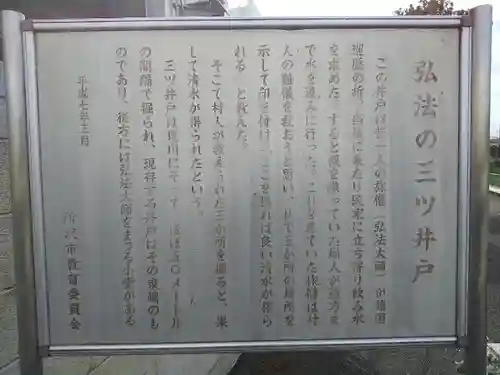 弘法の三ツ井戸
この井戸は昔一人の旅僧(弘法大師)が諸国
遍歴の折、当地に来たり民家に立ち寄り飲み水
を求めた。すると機を織っていた婦人が遠方ま
で水を汲みに行った。これを見ていた旅僧は村
人の難儀を救おうと思い、杖で三か所の場所を
示して印を付け「ここを掘れば良い清水が得ら
れる」と教えた。
そこで村人が教えられた三か所を掘ると、果
して清水が得られたという。
三ツ井戸は
の間隔で掘られ、現存する井戸はその東端のも
のであり、後方には弘法大師をまつる小堂がある
平成七年三月
所沢市教育委員会